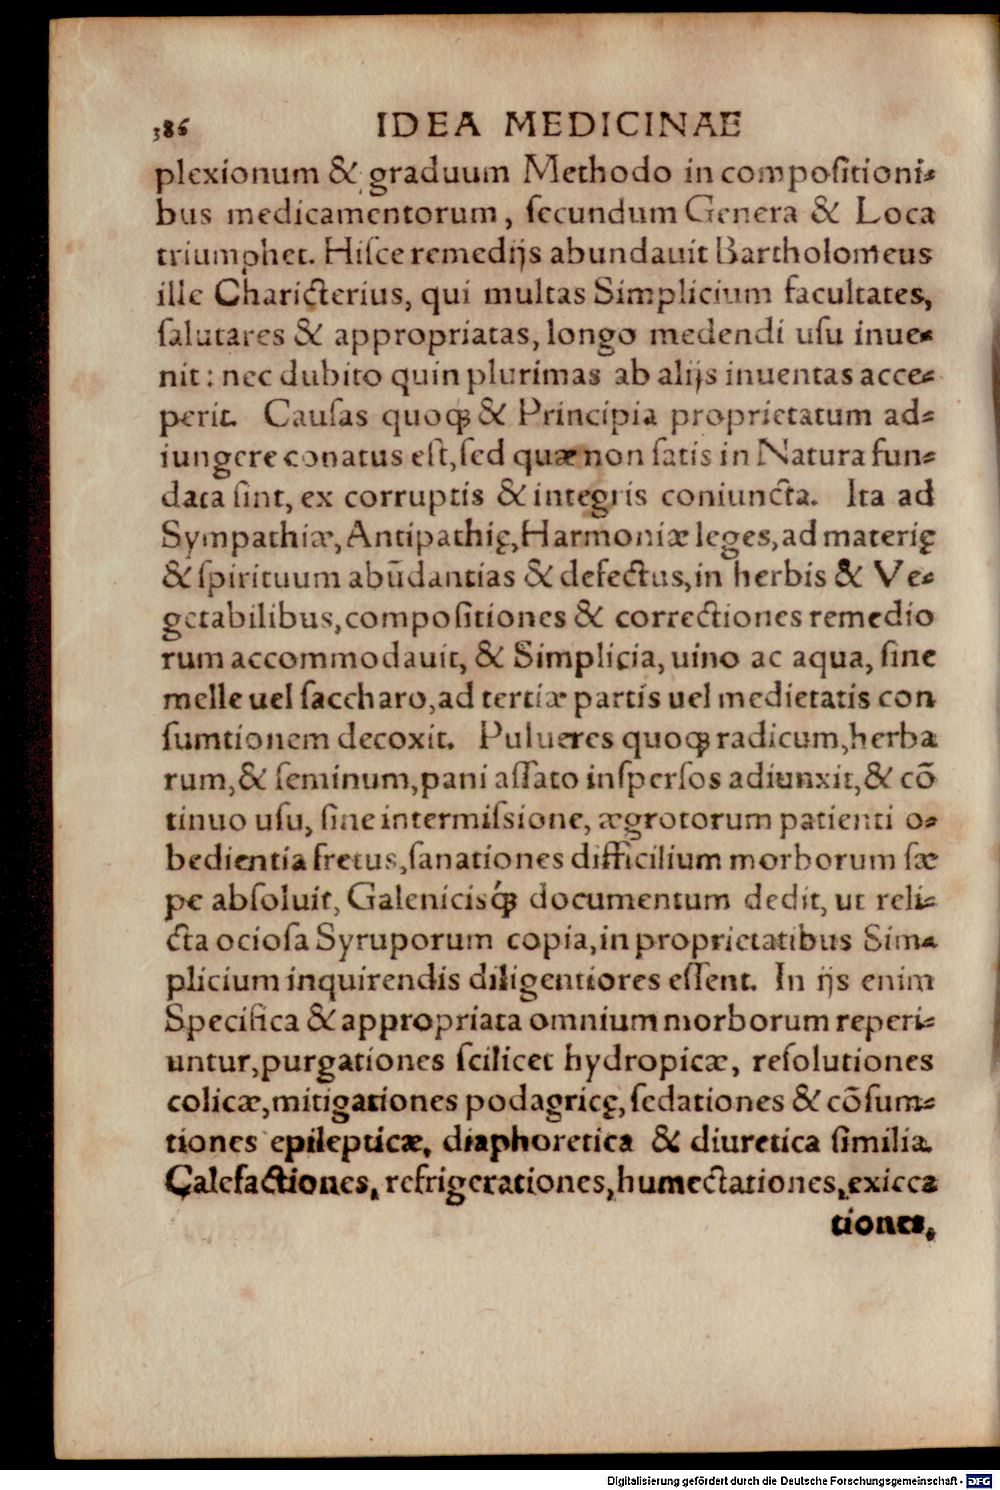 386 IDEA MEDICINAE
plexionum & graduum Methodo in compoſitioni-
bus medicamentorum, ſecundum Genera & Loca
triumphet. Hiſce remedijs abundauit Bartholomeus
ille Charicterius, qui multas Simplicium facultates,
ſalutares & appropriatas, longo medendi uſu inue-
nit: nec dubito quin plurimas ab alijs inuentas acce-
perit. Cauſas quoqꝫ & Principia proprietatum ad-
iungere conatus eſt, ſed quæ non ſatis in Natura fun-
data ſint, ex corruptis & integris coniuncta. Ita ad
Sympathiæ, Antipathię, Harmoniæ leges, ad materię
& ſpirituum abũdantias & defectus, in herbis & Ve-
getabilibus, compoſitiones & correctiones remedio
rum accommodauit, & Simplicia, uino ac aqua, ſine
melle uel ſaccharo, ad tertiæ partis uel medietatis con
ſumtionem decoxit. Pulueres quoqꝫ radicum, herba
rum, & ſeminum, pani aſſato inſperſos adiunxit, & cō
tinuo uſu, ſine intermiſsione, ægrotorum patienti o-
bedientia fretus, ſanationes difficilium morborum ſæ
pe abſoluit, Galenicisqꝫ́ documentum dedit, ut reli-
cta ocioſa Syruporum copia, in proprietatibus Sim-
plicium inquirendis diligentiores eſſent. In ijs enim
Specifica & appropriata omnium morborum reperi-
untur, purgationes ſcilicet hydropicæ, reſolutiones
colicæ, mitigationes podagricę, ſedationes & cōſum-
tiones epilepticæ, diaphoretica & diuretica ſimilia.
Calefactiones, refrigerationes, humectationes, exicca
tiones,
Digitalisierung gefördert durch die Deutsche Forschungsgemeinschaft - DFG